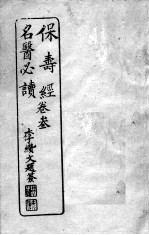 保壽經卷叁
名醫必讀
李纘文題簽